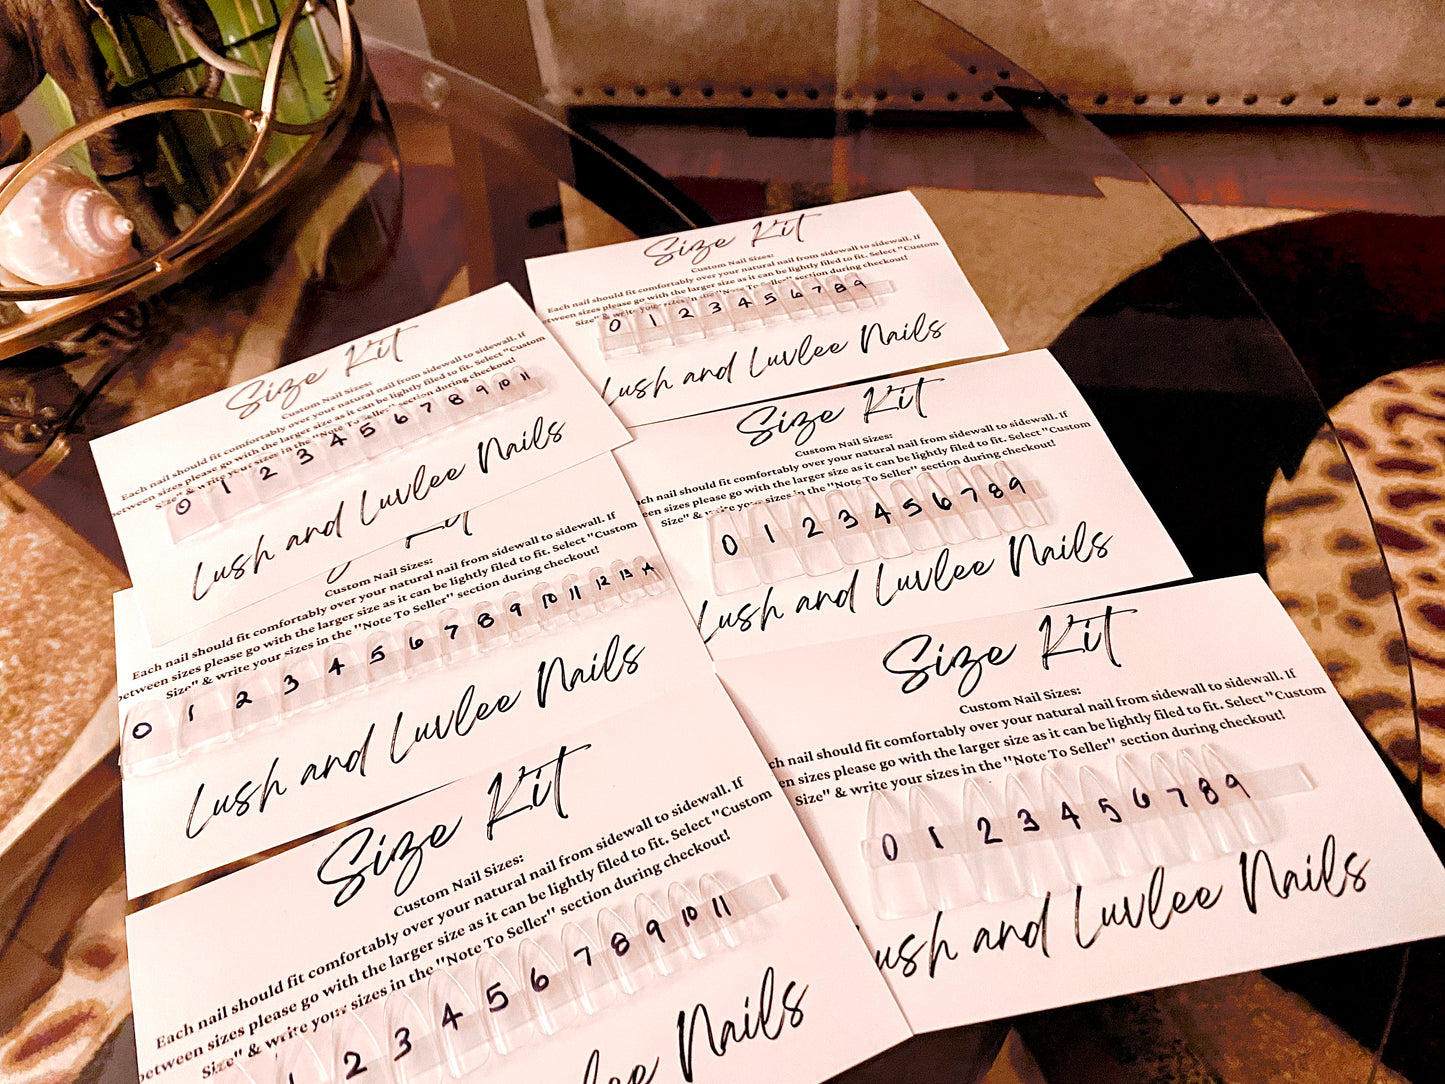 Size Kit
Custom Nail Sizes:
Each nail should fit comfortably over your natural nail from sidewall to sidewall. If
between sizes please go with the larger size as it can be lightly filed to fit. Select "Custom
Size" & write your sizes in the "Note To Seller" section during checkout!
0 1 2 3 4 5 6 7 8 9
Lush and Luvlee Nails
Size Kit
Custom Nail Sizes:
Each nail should fit comfortably over your natural nail from sidewall to sidewall. If
between sizes please go with the larger size as it can be lightly filed to fit. Select "Custom
Size" & write your sizes in the "Note To Seller" section during checkout!
0 1 2 3 4 5 6 7 8 9 10 11
Lush and Luvlee Nails
Size Kit
Custom Nail Sizes:
nail should fit comfortably over your natural nail from sidewall to sidewall. If
between sizes please go with the larger size as it can be lightly filed to fit. Select "Custom
Size" & write your sizes in the "Note To Seller" section during checkout!
0 1 2 3 4 5 6 7 8 9
Lush and Luvlee Nails
Kit
Custom Nail Sizes:
Each nail should fit comfortably over your natural nail from sidewall to sidewall. If
between sizes please go with the larger size as it can be lightly filed to fit. Select "Custom
Size" & write your sizes in the "Note To Seller" section during checkout!
0 1 2 3 4 5 6 7 8 9 10 11 12 13 14
Lush and Luvlee Nails
Size Kit
Custom Nail Sizes:
nail should fit comfortably over your natural nail from sidewall to sidewall. If
sizes please go with the larger size as it can be lightly filed to fit. Select "Custom
Size" & write your sizes in the "Note To Seller" section during checkout!
0 1 2 3 4 5 6 7 8 9
Lush and Luvlee Nails
Size Kit
Custom Nail Sizes:
Each nail should fit comfortably over your natural nail from sidewall to sidewall. If
between sizes please go with the larger size as it can be lightly filed to fit. Select "Custom
Size" & write your sizes in the "Note To Seller" section during checkout!
1 2 3 4 5 6 7 8 9 10 11
Nails